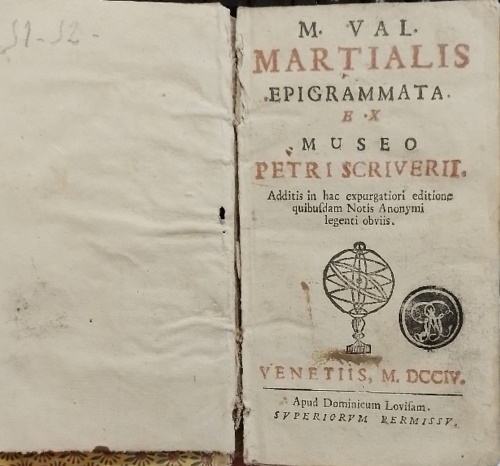 51-52-
M. VAL.
MARTIALIS
EPIGRAMMATA.
E X
MUSEO
PETRI SCRIVERII.
Additis in hac expurgatiori editione
quibuſdam Notis Anonymi
legenti obviis.
VENETIIS, M. DCCIV.
Apud Dominicum Loviſam.
SVPERIORVM PERMISSV.